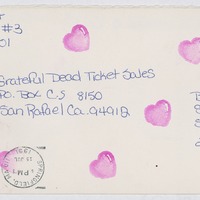 #3
01
Grateful Dead Ticket Sales
P.O. Box C.S. 8150
San Rafael Ca. 94912
PM